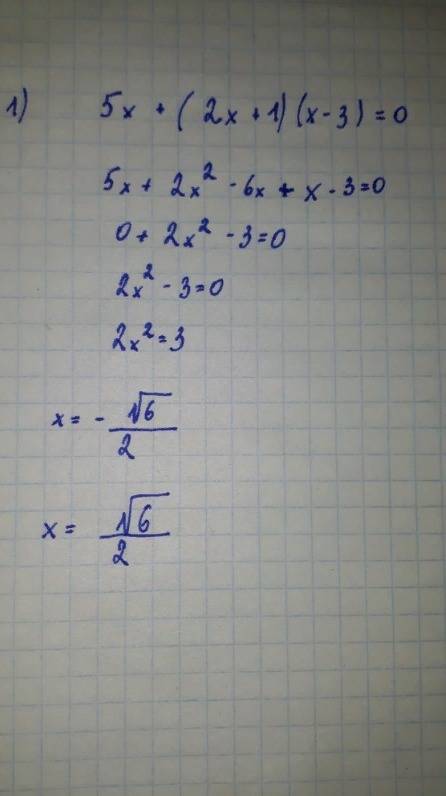 1) 5x + (2x + 1)(x - 3) = 0
5x + 2x² - 6x + x - 3 = 0
0 + 2x² - 3 = 0
2x² - 3 = 0
2x² = 3
x = - √6/2
x = √6/2